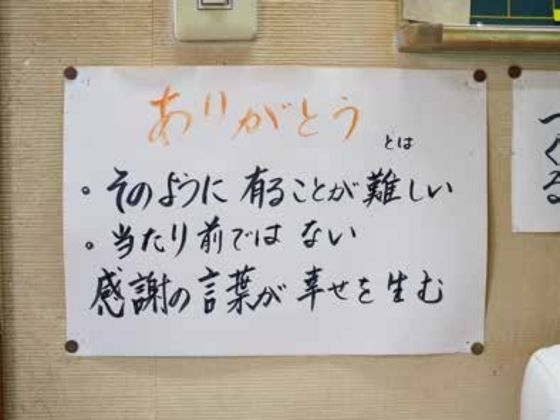 ありがとう
とは
。そのように有ることが難しい
。当たり前ではない
感謝の言葉が幸せを生む
つくる